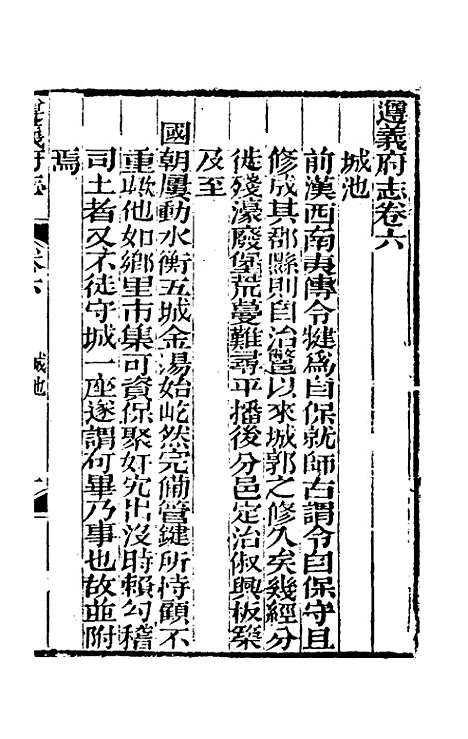 遵義府志卷六
城池
前漢西南夷傳令犍為自保就師古謂令自保守且
修成其郡縣則自治鄨以來城郭之修久矣幾經分
徙殘濠廢堡荒蔓難尋平播後分邑定治俶興板築
及至
國朝屢動水衡五城金湯始屹然完備管鍵所恃顧不
重歟他如鄉里市集可資保聚奸宄出沒時賴勾稽
司土者又不徒守城一座遂謂何畢乃事也故並附
焉
遵義府志
卷六
城池
一